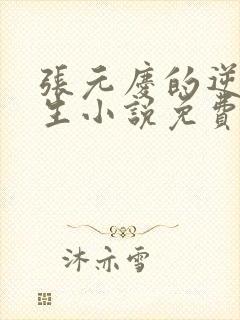 張元慶的逆
生小說免費
沐亦雪